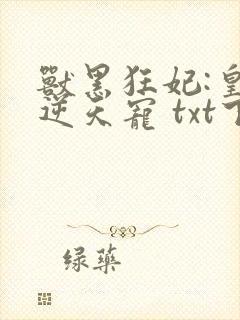 獸黑狂妃:皇
逆天寵 txt下
绿藥